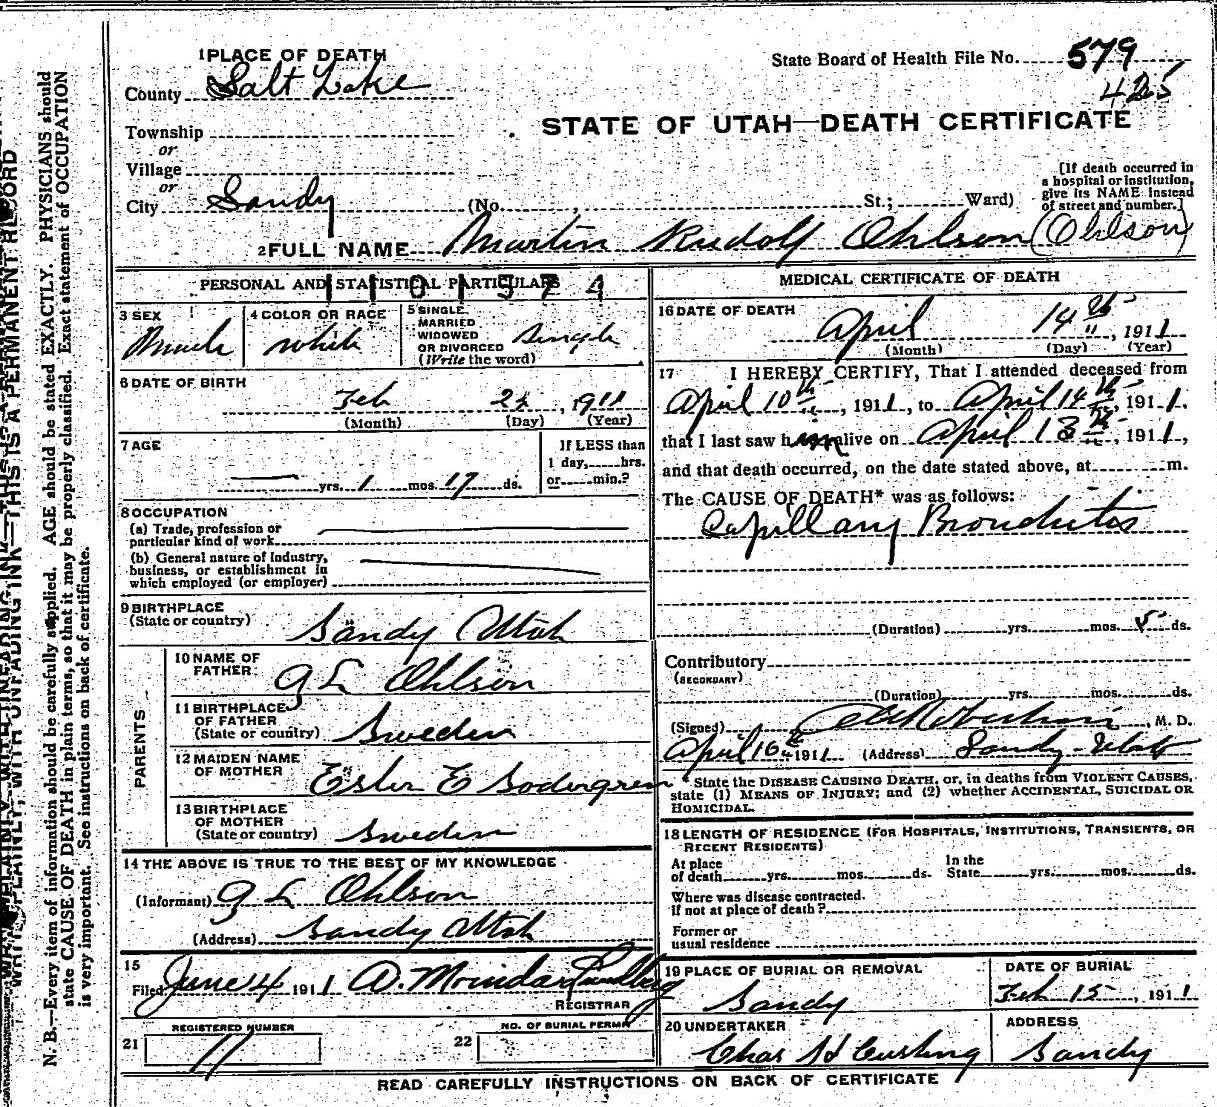 1 PLACE OF DEATH
County Salt Lake
Township
or
Village
or
City Sandy (No. , St.; Ward)
State Board of Health File No. 579
425
STATE OF UTAH—DEATH CERTIFICATE
[If death occurred in
a hospital or institution,
give its NAME instead
of street and number.]
2 FULL NAME Martin Rudolf Ohlson (Ohlson)
1101574
PERSONAL AND STATISTICAL PARTICULARS
3 SEX
Male
4 COLOR OR RACE
white
5 SINGLE
MARRIED
WIDOWED
OR DIVORCED
(Write the word)
Single
6 DATE OF BIRTH
Feb , 1911
(Month) (Day) (Year)
7 AGE
— yrs. 1 mos. 17 ds.
If LESS than
1 day, hrs.
or min.?
8 OCCUPATION
(a) Trade, profession or
particular kind of work
(b) General nature of Industry,
business, or establishment in
which employed (or employer)
9 BIRTHPLACE
(State or country)
Sandy Utah
PARENTS
10 NAME OF
FATHER
G L Ohlson
11 BIRTHPLACE
OF FATHER
(State or country)
Sweden
12 MAIDEN NAME
OF MOTHER
Ester E Sodergren
13 BIRTHPLACE
OF MOTHER
(State or country)
Sweden
14 THE ABOVE IS TRUE TO THE BEST OF MY KNOWLEDGE
(Informant) G L Ohlson
(Address) Sandy Utah
15
Filed June 4 1911 A.
REGISTRAR
REGISTERED NUMBER
21 11
NO. OF BURIAL PERMIT
22
MEDICAL CERTIFICATE OF DEATH
16 DATE OF DEATH
April 14th , 1911
(Month) (Day) (Year)
17 I HEREBY CERTIFY, That I attended deceased from
April 10th , 1911, to April 14th , 1911,
that I last saw him alive on April 13th , 1911,
and that death occurred, on the date stated above, at m.
The CAUSE OF DEATH* was as follows:
Capillary Bronchitis
(Duration) yrs. mos. 5 ds.
Contributory
(SECONDARY)
(Duration) yrs. mos. ds.
(Signed) Robertson , M. D.
April 16th 1911 (Address) Sandy Utah
*State the DISEASE CAUSING DEATH, or, in deaths from VIOLENT CAUSES,
state (1) MEANS OF INJURY; and (2) whether ACCIDENTAL, SUICIDAL OR
HOMICIDAL.
18 LENGTH OF RESIDENCE (FOR HOSPITALS, INSTITUTIONS, TRANSIENTS, OR
RECENT RESIDENTS)
At place
of death yrs. mos. ds.
In the
State yrs. mos. ds.
Where was disease contracted.
If not at place of death?
Former or
usual residence
19 PLACE OF BURIAL OR REMOVAL
Sandy
DATE OF BURIAL
Feb 15 , 1911
20 UNDERTAKER
Chas H Cushing
ADDRESS
Sandy
READ CAREFULLY INSTRUCTIONS ON BACK OF CERTIFICATE
WRITE PLAINLY, WITH UNFADING INK—THIS IS A PERMANENT RECORD
N. B.—Every item of information should be carefully supplied. AGE should be stated EXACTLY. PHYSICIANS should
state CAUSE OF DEATH in plain terms, so that it may be properly classified. Exact statement of OCCUPATION
is very important. See instructions on back of certificate.